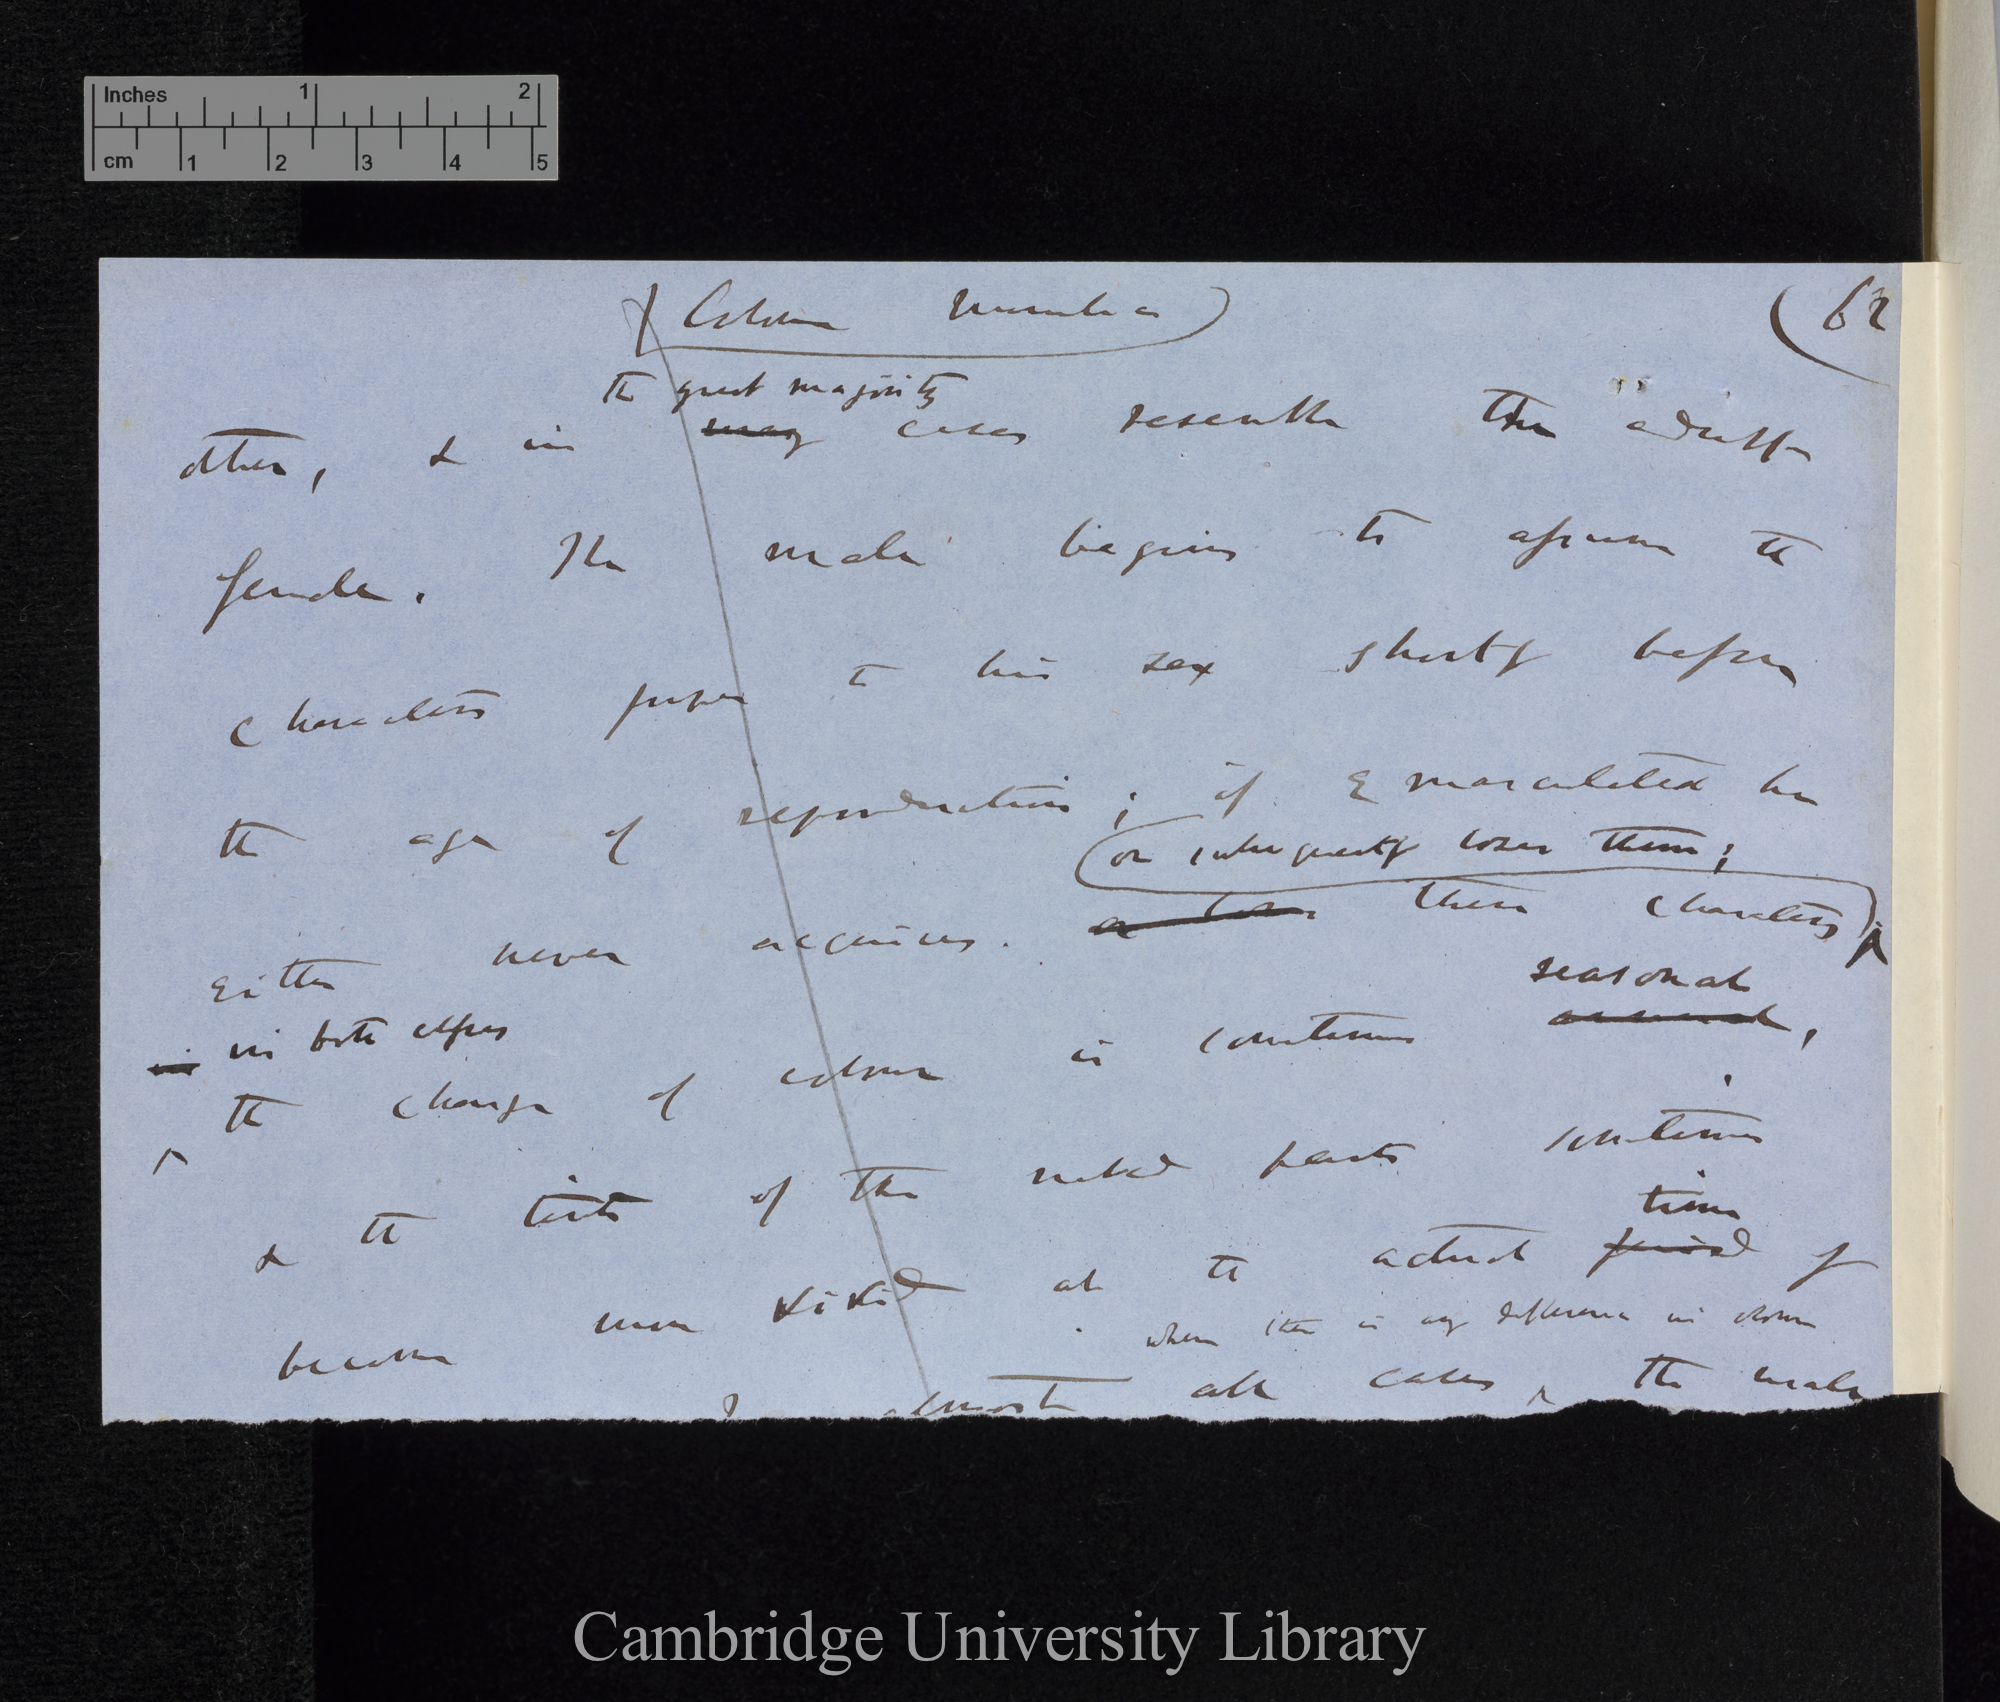 Inches 1 2
cm 1 2 3 4 5
(Colour Mammalia)
(62
the great majority
other, & in many cases resemble the adult
female. The male begins to assume the
characters proper to his sex shortly before
the age of reproduction; if emasculated he
or subsequently loses them;
either never acquires or loses these characters
seasonal
in in both classes
the change of colour is sometimes annual,
& the tints of the naked parts sometimes
time
become more vivid at the actual period of
when there is any difference in colour
almost all cases the male
Cambridge University Library